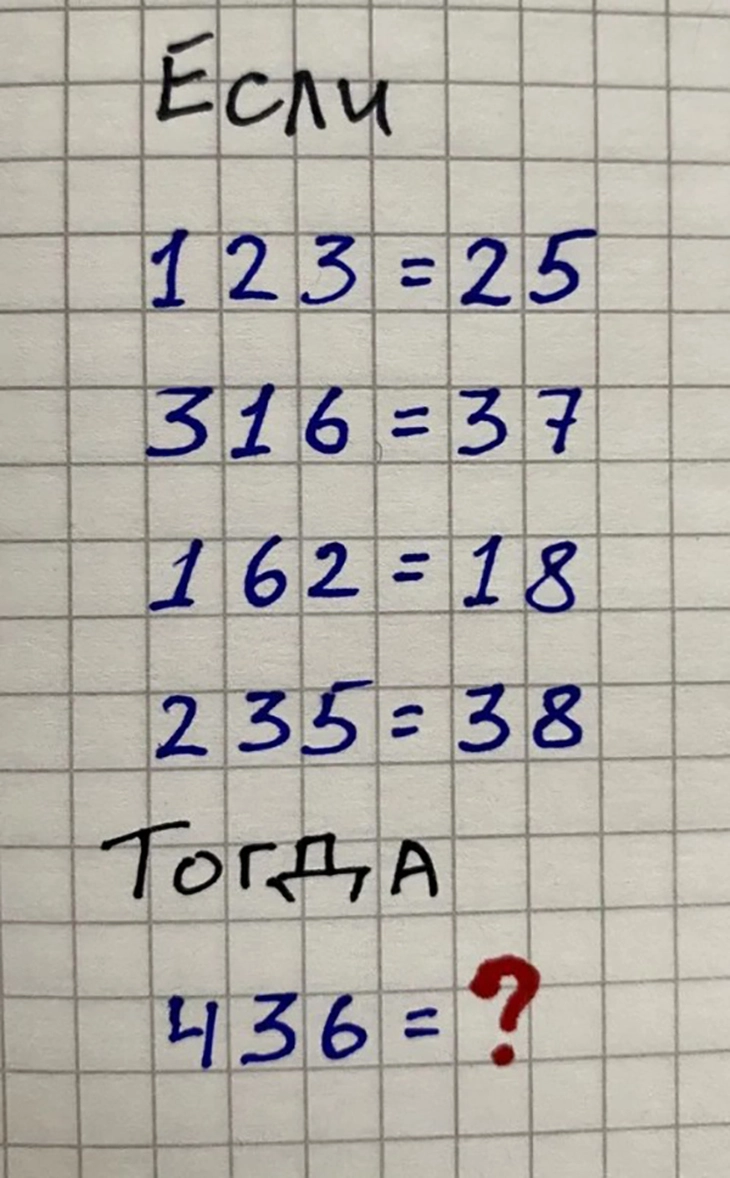 Если
123 = 25
316 = 37
162 = 18
235 = 38
Тогда
436 = ?